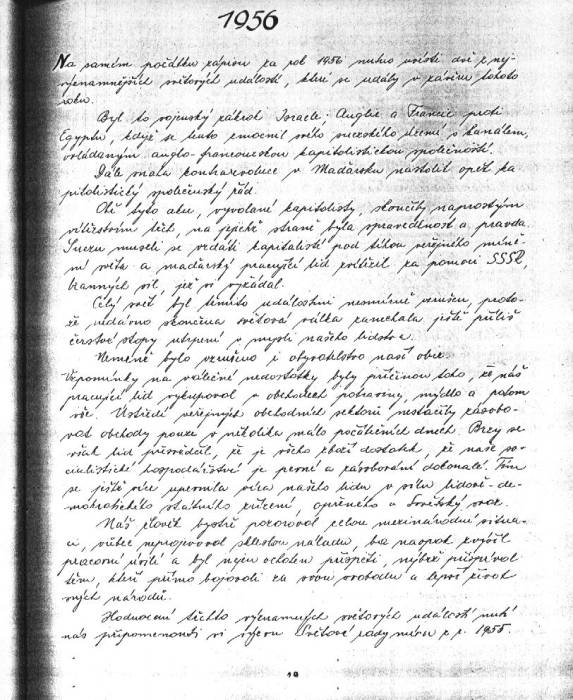 1956
Na samém počátku zápisu za rok 1956 nutno uvésti dvě z nej-
významnějších světových událostí, které se udály v závěru tohoto
roku.
Byl to vojenský zákrok Israele, Anglie a Francie proti
Egyptu, když se tento zmocnil svého suezského území s kanálem,
ovládaným anglo-francouzskou kapitalistickou společností.
Dále snaha kontrarevoluce v Maďarsku nastolit opět ka
pitalistický společenský řád.
Obě tyto akce, vyvolané kapitalisty, skončily naprostým
vítězstvím těch, na jejichž straně byla spravedlnost a pravda.
Suezu museli se vzdáti kapitalisté pod tíhou veřejného míně
ní světa a maďarský pracující lid zvítězil za pomoci SSSR,
branných sil, jež si vyžádal.
Celý svět byl těmito událostmi nesmírně vzrušen, proto-
že nedávno skončená světová válka zanechala ještě příliš
čerstvé stopy utrpení v mysli našeho lidstva.
Neméně bylo vzrušeno i obyvatelstvo naší obce.
Vzpomínky na válečné nedostatky byly příčinou toho, že náš
pracující lid vykupoval v obchodech potraviny, mýdlo a potom
vše. Ústředí veřejných obchodních sektorů nestačily zásobo-
vat obchody pouze v několika málo počátečních dnech. Brzy se
však lid přesvědčil, že je všeho zboží dostatek, že naše so-
cialistické hospodářství je pevné a zásobování dokonalé. Tím
se ještě více upevnila víra našeho lidu v sílu lidově-de-
mokratického státního zřízení, opřeného o Sovětský svaz.
Náš člověk bystře pozoroval celou mezinárodní situa-
ci, vůbec nepropadl skleslou náladu, ba naopak zvýšil
pracovní úsilí a byl nejen ochoten přispěti, nýbrž přispíval
těm, kteří přímo bojovali za svou svobodu a lepší život
svých národů.
Hodnocení těchto významných světových událostí nutí
nás připomenouti si výzvu Světové rady míru z r. 1955.
19